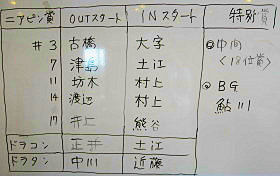 ニアピン賞 OUTスタート INスタート 特別賞
#3 古橋 大字 ◎中間
7 津島 土江 〈18位賞〉
11 坊木 村上 ◎BG
14 渡辺 村上 鮎川
17 井上 熊谷
ドラコン 正井 土江
ドラタン 中川 近藤